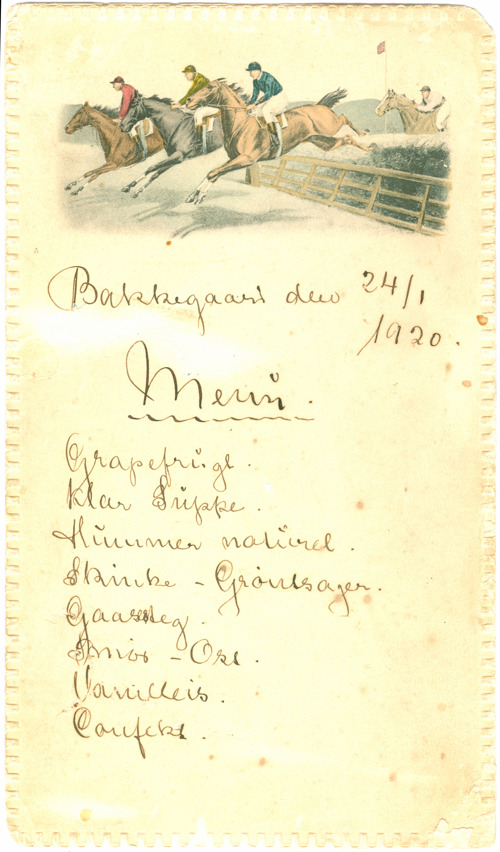 Bakkegaard den 24/1
1920.
Menu.
Grapefrugt.
Klar Suppe.
Hummer naturel.
Skinke - Grøntsager.
Gaasesteg.
Smør - Ost.
Vanilleis.
Confekt.